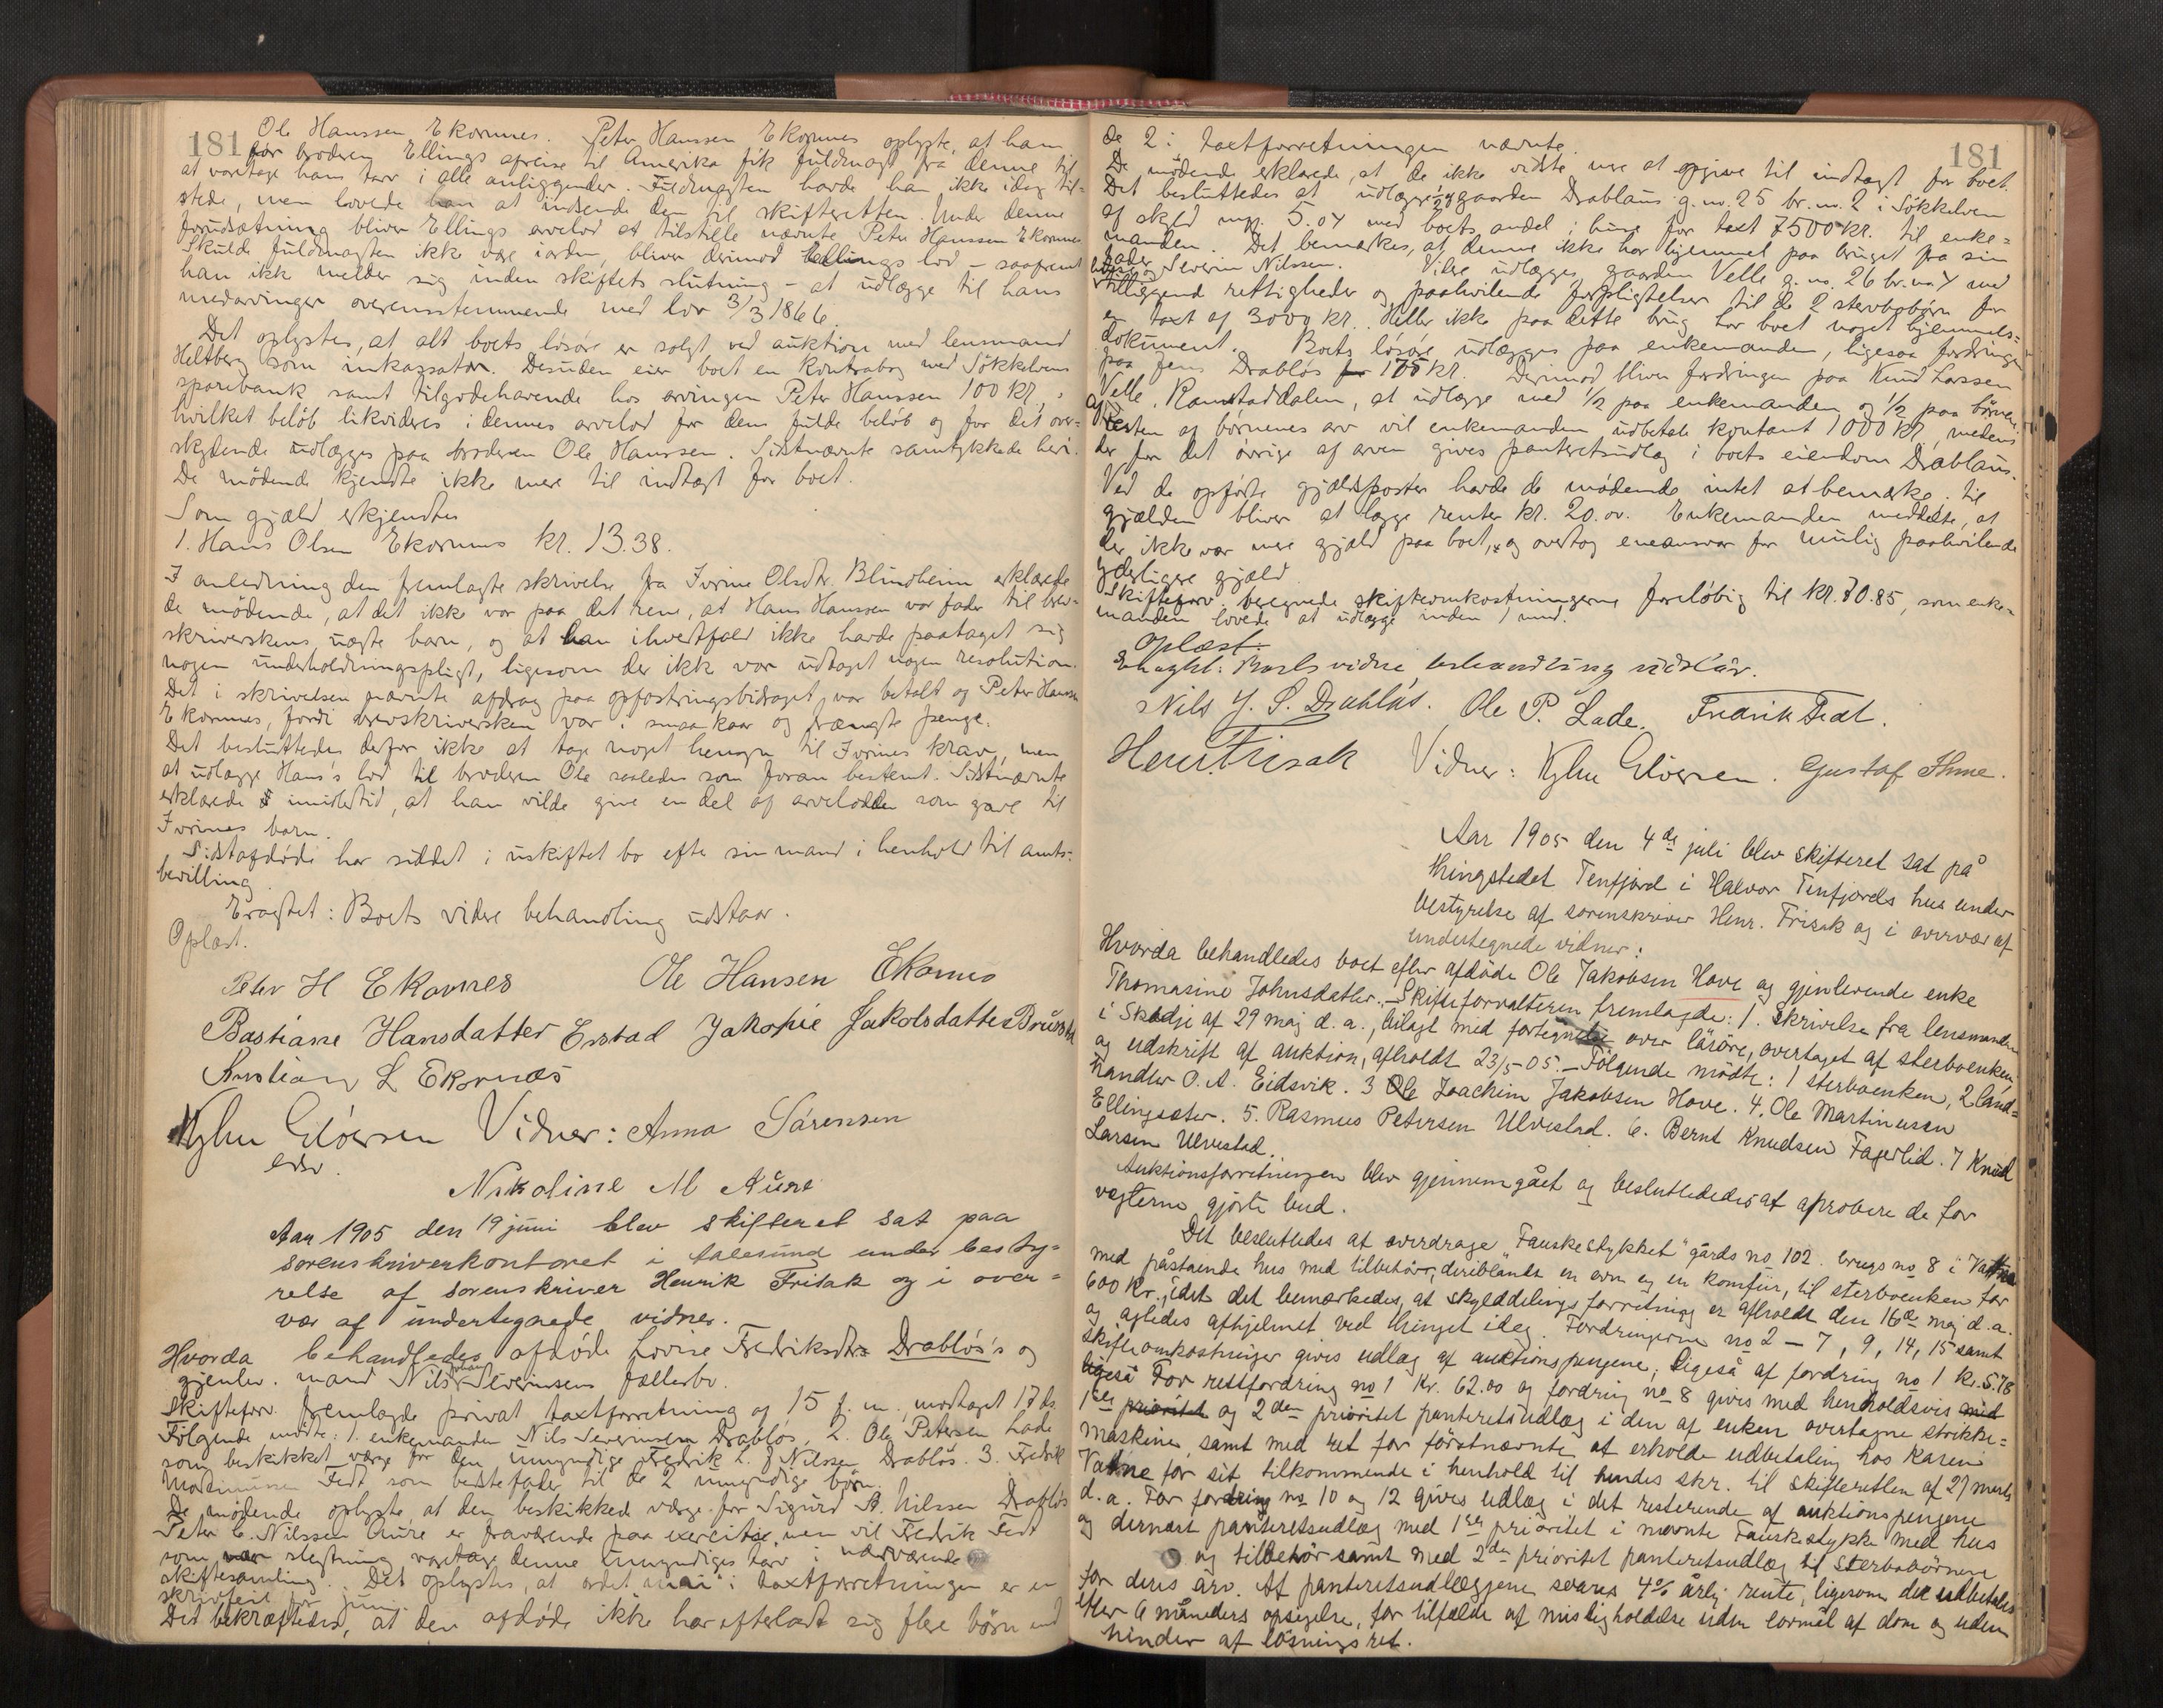 181
Ole Hanssen Ekornnes. Peter Hanssen Ekornnes oplyste, at han
før broderen Ellings afreise til Amerika fik fuldmagt fra denne til
at varetage hans tarv i alle anliggender. Fuldmagten havde han ikke idag til-
stede, men lovede han at indsende den til skifteretten. Under denne
forudsætning bliver Ellings arvelod at tilstille nævnte Peter Hanssen Ekornnes
Skulde fuldmagten ikke være iorden, bliver derimod Ellings lod – saafremt
han ikke melder sig inden skiftets slutning – at udlægge til hans
medarvinger overensstemmende med lov 3/3 1866.
Det oplystes, at alt boets løsøre er solgt ved auktion med lensmand
Heltberg som inkassator. Desuden eier boet en Kontrabog med Søkkelvens
sparebank samt tilgodehavende hos arvingen Peter Hanssen 100 kr.,
hvilket beløb likvideres i dennes arvelod for dens fulde beløb og for det over-
skydende udlægges paa broderen Ole Hanssen. Sidstnævnte samtykkede heri.
De mødende kjendte ikke mere til indtægt for boet.
Som gjæld erkjendtes
1. Hans Olsen Ekornnes kr. 13.38.
I anledning den fremlagte skrivelse fra Ivrine Olsdtr. Blindheim erklærede
de mødende, at det ikke var paa det rene, at Hans Hanssen var fader til brev-
skriverskens uægte barn, og at han ihvertfald ikke havde paataget sig
nogen underholdningspligt, ligesom der ikke var udtaget nogen resolution.
Det i skrivelsen nævnte afdrag paa opfostringsbidraget, var betalt af Peter Hanssen
Ekornnes, fordi brevskriversken var i smaa kaar og trængte penge.
Det besluttedes derfor ikke at tage noget hensyn til Ivrines krav, men
at udlægge Hans's lod til broderen Ole saaledes som foran bestemt. Sidstnævnte
erklærede imidlertid, at han vilde give en del af arvelodden som gave til
Ivrines barn.
Sidstafdøde har siddet i uskiftet bo efter sin mand i henhold til amts-
bevilling.
Eragtet: Boets videre behandling udstaar.
Oplæst.
Peter H Ekornnes Ole Hansen Ekornes
Bastiane Hansdatter Erstad Jakopie Jakobsdatter
Kristian L Ekornæs
Vidner: Anna Sørensen
Nikoline M Aure
Aar 1905 den 19 juni blev skifteret sat paa
sorenskriverkontoret i Aalesund under besty-
relse af sorenskriver Henrik Frisak og i over-
vær af undertegnede vidner.
Hvorda behandledes afdøde Lovise Fredriksdtr. Drabløs's og
gjenlev. mand Nils Johan Severinsens fællesbo.
Skifteforv. fremlagde privat taxtforretning af 15 f. m., modtaget 17 ds.
Følgende mødte: 1. enkemanden Nils Severinsen Drabløs, 2. Ole Petersen Lade
som beskikket værge for den umyndige Fredrik L. J Nilssen Drabløs. 3. Fredrik
Martinussen Fedt som bedstefader til de 2 umyndige børn.
De mødende oplyste, at den beskikkede værge for Sigurd A. Nilssen Drabløs
Peter C. Nilssen Aure er fraværende paa exercitse, men vil Fredrik Fedt
som slegtning varetage denne umyndiges tarv i nærværende
skiftesamling. Det oplystes, at ordet "mai" i taxtforretningen er en
skrivfeil for juni.
Det bekræftedes, at den afdøde ikke har efterladt sig flere børn end
181
de 2 i taxtforretningen nævnte.
De mødende erklærede, at de ikke vidste mere at opgive til indtægt for boet.
Det besluttedes at udlægge gaarden Drablaus g. no. 25 br. no. 2 i Søkkelven
af skyld mrk. 5.04 med boets andel i hus for taxt 7500 kr. til enke-
manden. Det bemærkes, at denne ikke har hjemmel paa bruget fra sin
fader Severin Nilssen. Videre udlægges gaarden Velle g. no. 26 br. no. 4 med
tilliggende rettigheder og paahvilende forpligtelser til de 2 stervbobørn for
en taxt af 3000 kr. Heller ikke paa dette brug har boet noget hjemmels-
dokument. Boets løsøre udlægges paa enkemanden, ligesaa fordringen
paa Jens Drabløs 175 kr. Derimod bliver fordringen paa Knud Larssen
Velle, Ramstaddalen, at udlægge med 1/2 paa enkemanden og 1/2 paa børnene.
Af resten af børnenes arv vil enkemanden udbetale kontant 1000 kr., medens
der for det øvrige af arven gives panteretsudlæg i boets eiendom Drablaus.
Ved de opførte gjældsposter havde de mødende intet at bemærke. Til
gjælden bliver at lægge renter kr. 20.00. Enkemanden meddelte, at
der ikke var mere gjæld paa boet, og overtog eneansvar for mulig paahvilende
yderligere gjæld.
Skifteforv. beregnede skifteomkostningerne foreløbig til kr. 70.85, som enke-
manden lovede at udlægge inden 1 mnd.
Oplæst.
Eragtet: Boets videre behandling udstaar.
Nils J. S. Drabløs. Ole P. Lade. Fredrik Fedt.
Henr. Frisak Vidner: Gustaf Thme.
Aar 1905 den 4de juli blev skifteret sat på
thingstedet Tenfjord i Halvor Tenfjords hus under
bestyrelse af sorenskriver Henr. Frisak og i overvær af
undertegnede vidner:
Hvorda behandledes boet efter afdøde Ole Jakobsen Hove og gjenlevende enke
Thomasine Johnsdatter. – Skifteforvalteren fremlagde: 1. skrivelse fra lensmanden
i Skodje af 29 maj d. a., bilagt med fortegnelse over løsøre, overtaget af sterboenken,
og udskrift af auktion, afholdt 23/5-05. – Følgende mødte: 1 sterboenken, 2 land-
handler O. A. Eidsvik. 3 Ole Joachim Jakobsen Hove. 4. Ole Martinussen
Ellingsæter. 5. Rasmus Petersen Ulvestad. 6. Bernt Knudsen Fagerlid. 7 Knud
Larsen Ulvestad.
Auktionsforretningen blev gjennemgået og besluttededes at aprobere de for
vegterne gjorte bud.
Det besluttedes at overdrage "Fauskestykket" gårds no 102. brugs no 8 i Vatne
med påstående hus med tilbehør, deriblandt en ovn og en komfur, til sterboenken for
600 Kr., idet det bemærkedes, at skylddelingsforretning er afholdt den 16de maj d. a.
og agtedes afhjemlet ved thinget idag. Fordringerne no 2 – 7, 9, 14, 15 samt
skifteomkostninger gives udlæg af auktionspengene; ligeså af fordring no 1 kr. 5.78
For restfordring no 1 Kr. 62.00 og fordring no 8 gives med henholdsvis
1ste og 2den prioritet panteretsudlæg i den af enken overtagne strikke-
maskine, samt med ret for førstnævnte at erholde udbetaling hos Karen
Vatne for sit tilkommende i henhold til hendes skr. til skifteretten af 27 marts
d. a. For fordring no 10 og 12 gives udlæg i det resterende af auktionspengene
og dernæst panteretsudlæg med 1ste prioritet i nævnte Fauskestykke med hus
og tilbehør samt med 2den prioritet panteretsudlæg til sterbobørnene
for deres arv. Af panteretsudlæggene svares 4% årlig rente, ligesom de udbetales
efter 6 måneders opsigelse, for tilfælde af misligholdelse uden lovmål af dom og uden
hinder af løsningsret.